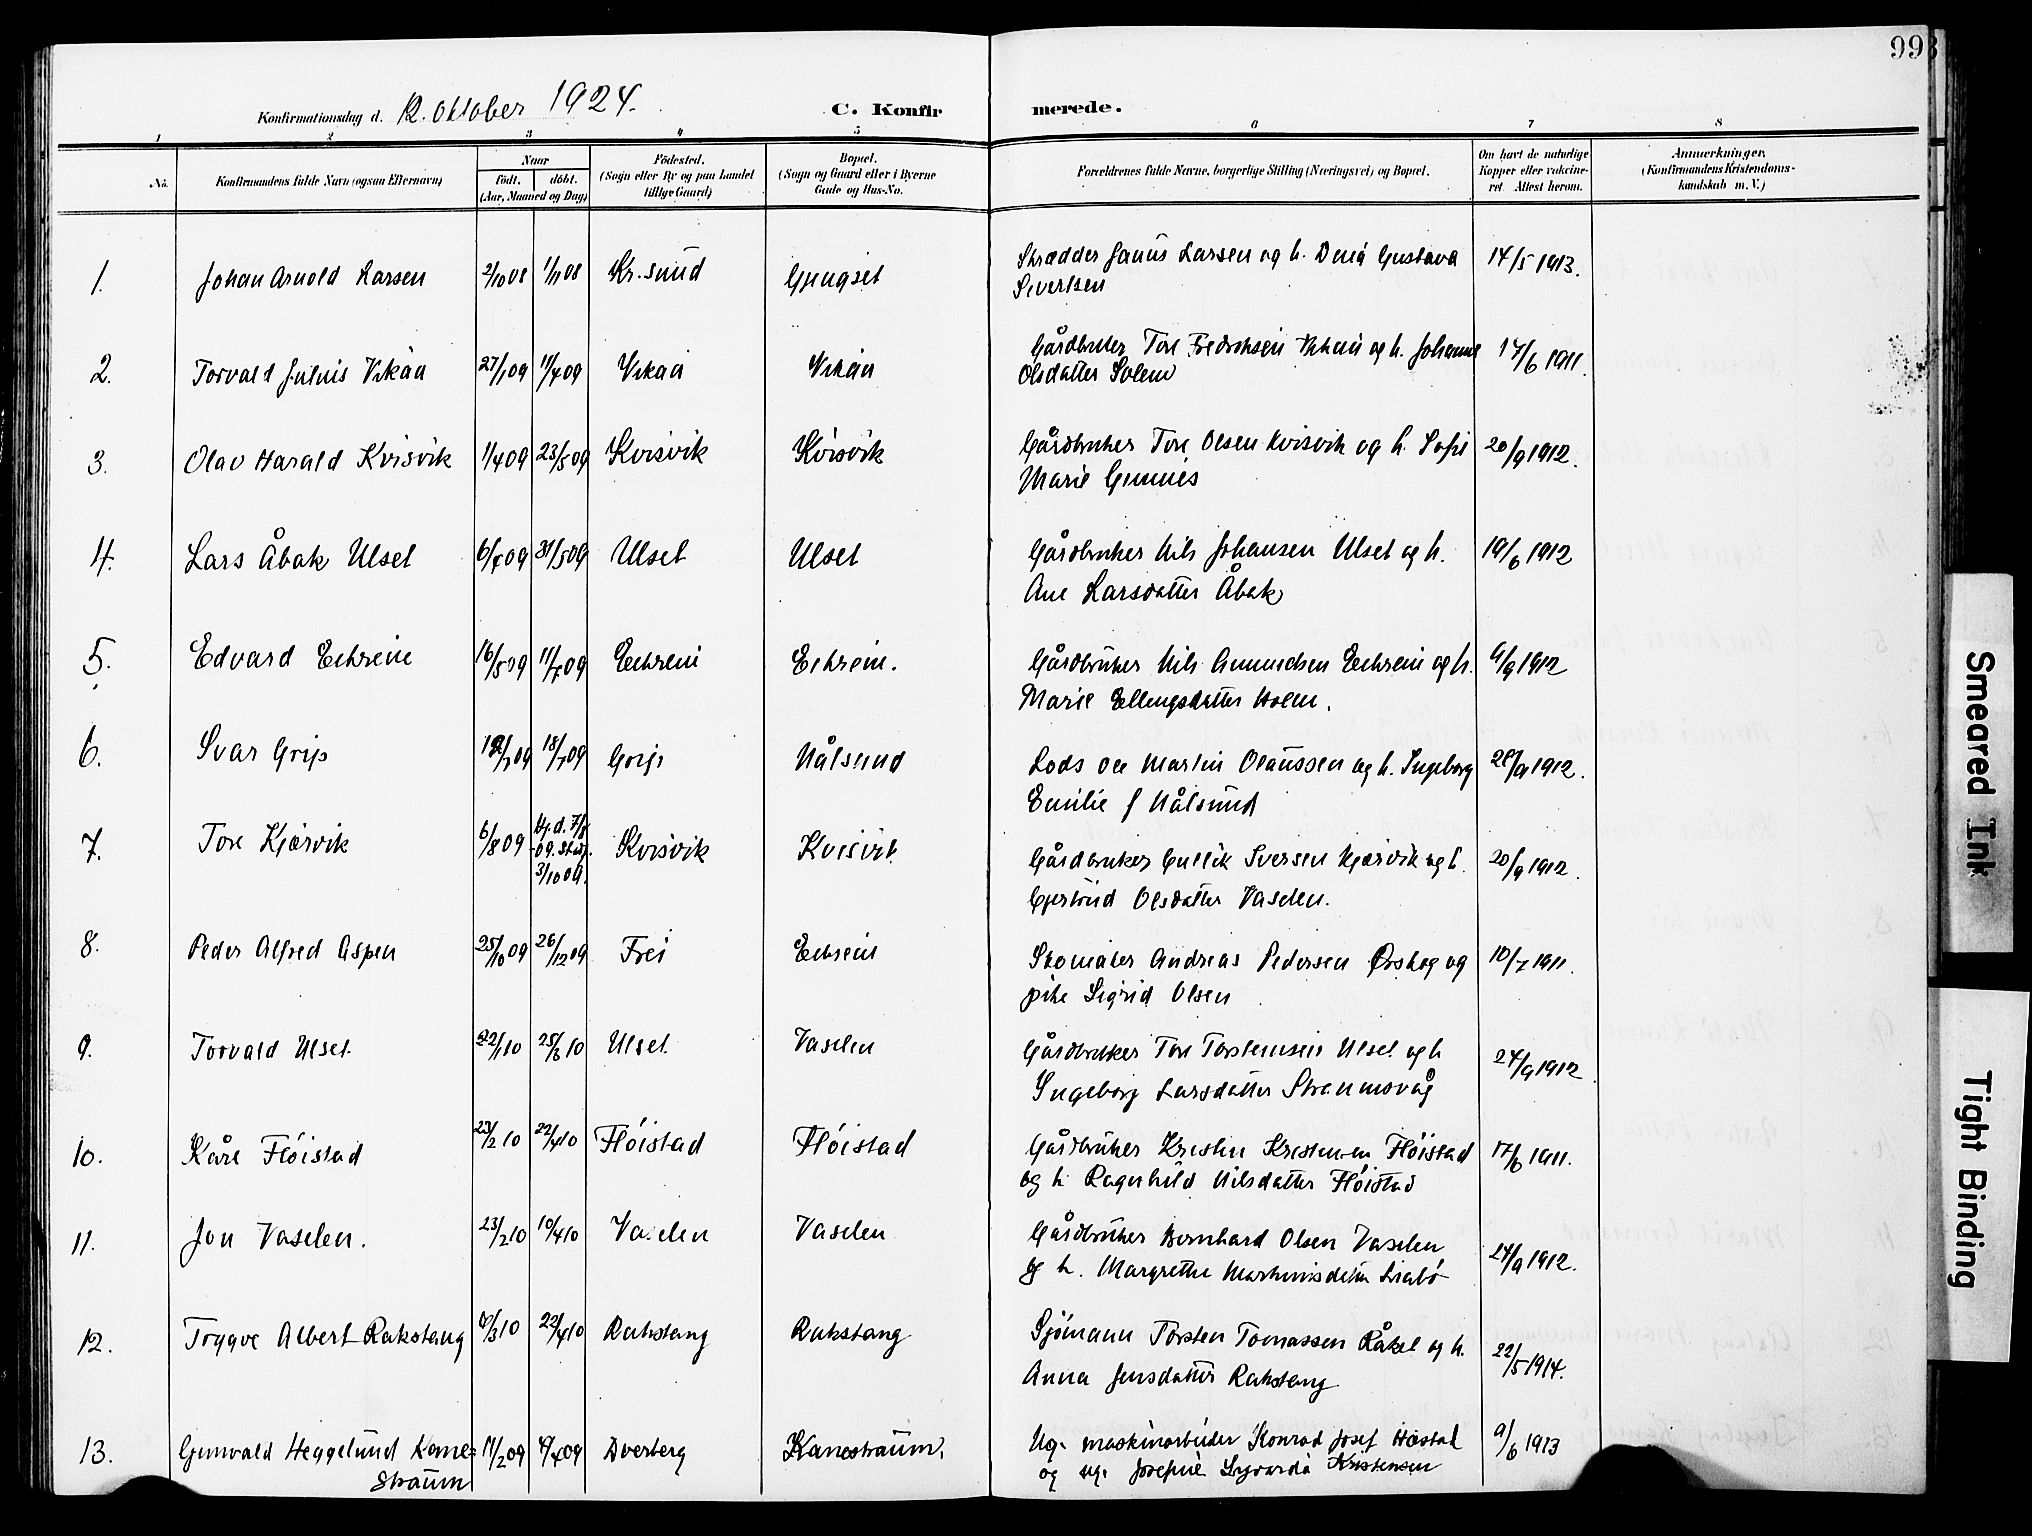 99
Konfirmationsdag d. 12. oktober 1924.
C. Konfirmerede.
1 2 3 4 5 6 7 8
No. Konfirmandens fulde Navn (ogsaa Efternavn) Naar født. døbt. (Aar, Maaned og Dag) Fødested. (Sogn eller By og paa Landet tillige Gaard) Bopæl. (Sogn og Gaard eller i Byerne Gade og Hus-No. Forældrenes fulde Navne, borgerlige Stilling (Næringsvei) og Bopæl. Om havt de naturlige Kopper eller vakcineret. Attest herom. Anmærkninger. (Konfirmandens Kristendomskundskab m. V.)
1. Johan Arnold Larsen 2/10 08 1/11 08 Kr.sund Gjengset Skrædder Janus Larsen og h. Gustava 14/5 1913.
Sivertsen
2. Torvald Julius Vikan 27/1 09 11/4 09 Vikan Vikan Gårdbruker Tore Fredriksen Vikan og h. Johanna 17/6 1911.
Olsdatter Solem
3. Olav Harald Kvisvik 1/4 09 23/5 09 Kvisvik Kvisvik Gårdbruker Tore Olsen Kvisvik og h. Sofie 20/9 1912.
Marie Gimnes
4. Lars Åbak Ulset 6/4 09 31/5 09 Ulset Ulset Gårdbruker Nils Johansen Ulset og h. 19/6 1912
Ane Larsdatter Åbak
5. Edvard Eikrem 16/5 09 11/7 09 Eikrem Eikrem. Gårdbruker Nils Amundsen Eikrem og h. 9/9 1912
Marie Ellingsdatter Holm.
6. Ivar Grip 18/7 09 Grip Nålsund Lods Ole Martin Olaussen og h. Ingeborg 28/9 1912.
Emilie f Nålsund
7. Tore Kjørvik 6/8 09 Hj.d. 7/8 09. st.f. 3/10 09. Kvisvik Kvisvik Gårdbruker Gullik Iversen Kjørvik og h. 20/9 1912.
Gjertrud Olsdatter Vaselen.
8. Peder Alfred Aspen 25/10 09 26/12 09 Frei Eikrem Skomaker Andreas Pedersen Ørskog og 10/7 1911.
pike Sigrid Olsen
9. Torvald Ulset 22/1 10 25/3 10 Ulset Vaselen Gårdbruker Tore Torstensen Ulset og h 24/9 1912
Ingeborg Larsdatter Straumsvåg
10. Kåre Fløistad 23/2 10 22/4 10 Fløistad Fløistad Gårdbruker Kristen Kristensen Fløistad 17/6 1911.
og h Ragnhild Nilsdatter Fløistad
11. Jon Vaselen. 23/2 10 10/4 10 Vaselen Vaselen Gårdbruker Bernhard Olsen Vaselen 24/9 1912.
og h. Margrethe Martinusdatter
12. Trygve Albert Rakstang 7/3 10 22/4 10 Rakstang Rakstang Sjømann Torsten Tomassen Råket og h. 22/5 1914.
Anna Jensdatter Rakstang
13. Gunvald Heggelund Kanestraum 17/2 09 4/4 09 Dverberg Kanestraum. Ug. maskinarbeider Konrad Josef Hastad 9/6 1913
og ug. Josefine Kristensen
Smeared Ink
Tight Binding